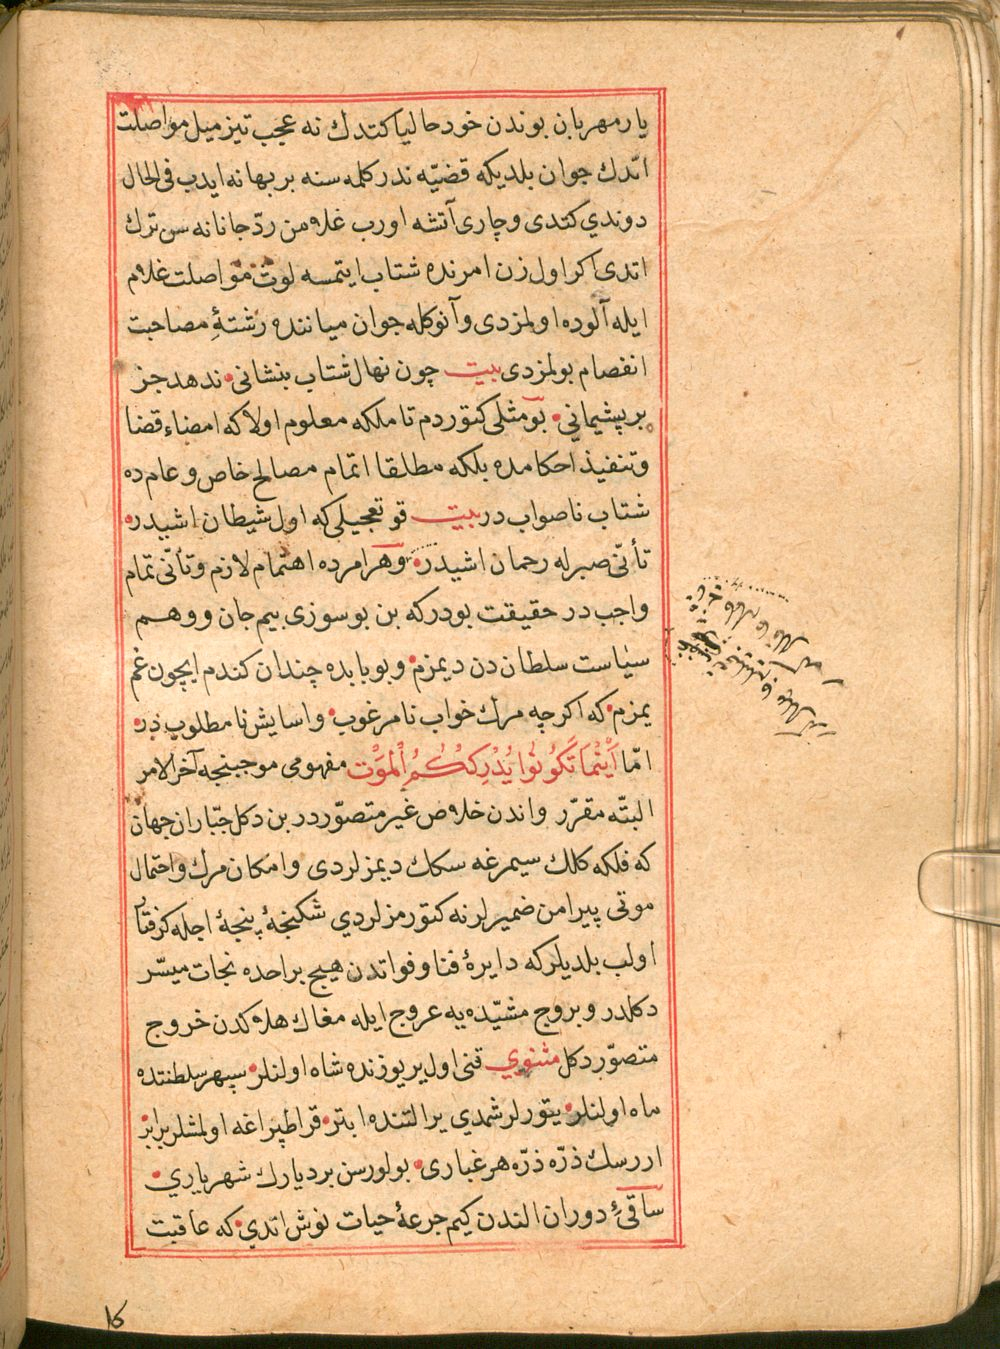 يار مهربان بوندن خود حاليا كتدك نه عجب تيز ميل مواصلت
اتّدك جوان بلديكه قضيّه ندر كلمه سنه بر بهانه ايدب فى الحال
دوندي كتدى وچارى آتشه اورب غلامن ردّ جانانه سن ترك
اتدى اكر اول زن امرنده شتاب ايتمسه لوث مواصلت غلام
ايله آلوده اولمزدى وآنوكله جوان مياننده رشتهٔ مصاحبت
انفصام بولمزدى بيت چون نهال شتاب بنشانى ندهد جز
بر پشيمانى بو مثلى كتوردم تا ملكه معلوم اولا كه امضاء قضا
وتنفيذ احكامده بلكه مطلقا اتمام مصالح خاص وعام ده
شتاب ناصواب در بيت قو تعجيلى كه اول شيطان اشيدر
تأنّى صبرله رحمان اشيدر وهر امرده اهتمام لازم وتأنّى تمام
واجب در حقيقت بودركه بن بو سوزى بيم جان ووهم
سياست سلطان دن ديمزم وبو بابده چندان كندم ايچون غم
يمزم كه اكرچه مرك خواب نامرغوب واسايش نامطلوب در
امّا أَيْنَمَا تَكُونُوا يُدْرِككُّمُ الْمَوْت مفهومى موجبنجه آخر الامر
البتّه مقرّر واندن خلاص غير متصوّردر بن دكل جبّاران جهان
كه فلكه كلك سيمرغه سكك ديمزلردى وامكان مرك واحتمال
موتى پيرامن ضميرلرنه كتورمزلردي شكنجهٔ پنجهٔ اجله كرفتار
اولب بلديلركه دايرهٔ فنا وفواتدن هيچ براحده نجات ميسّر
دكلدر وبروج مشيّده يه عروج ايله مغاك هلاكدن خروج
متصوّر دكل مثنوي قنى اول ير يوزنده شاه اولنلر سپهر سلطنتده
ماه اولنلر يتورلر شمدي ير التنده ابتر قراطپراغه اولمشلر برابر
اررسك ذرّه ذرّه هر غبارى بولورسن بر ديارك شهرياري
ساقئ دوران الندن كيم جرعهٔ حيات نوش اتدي كه عاقبت